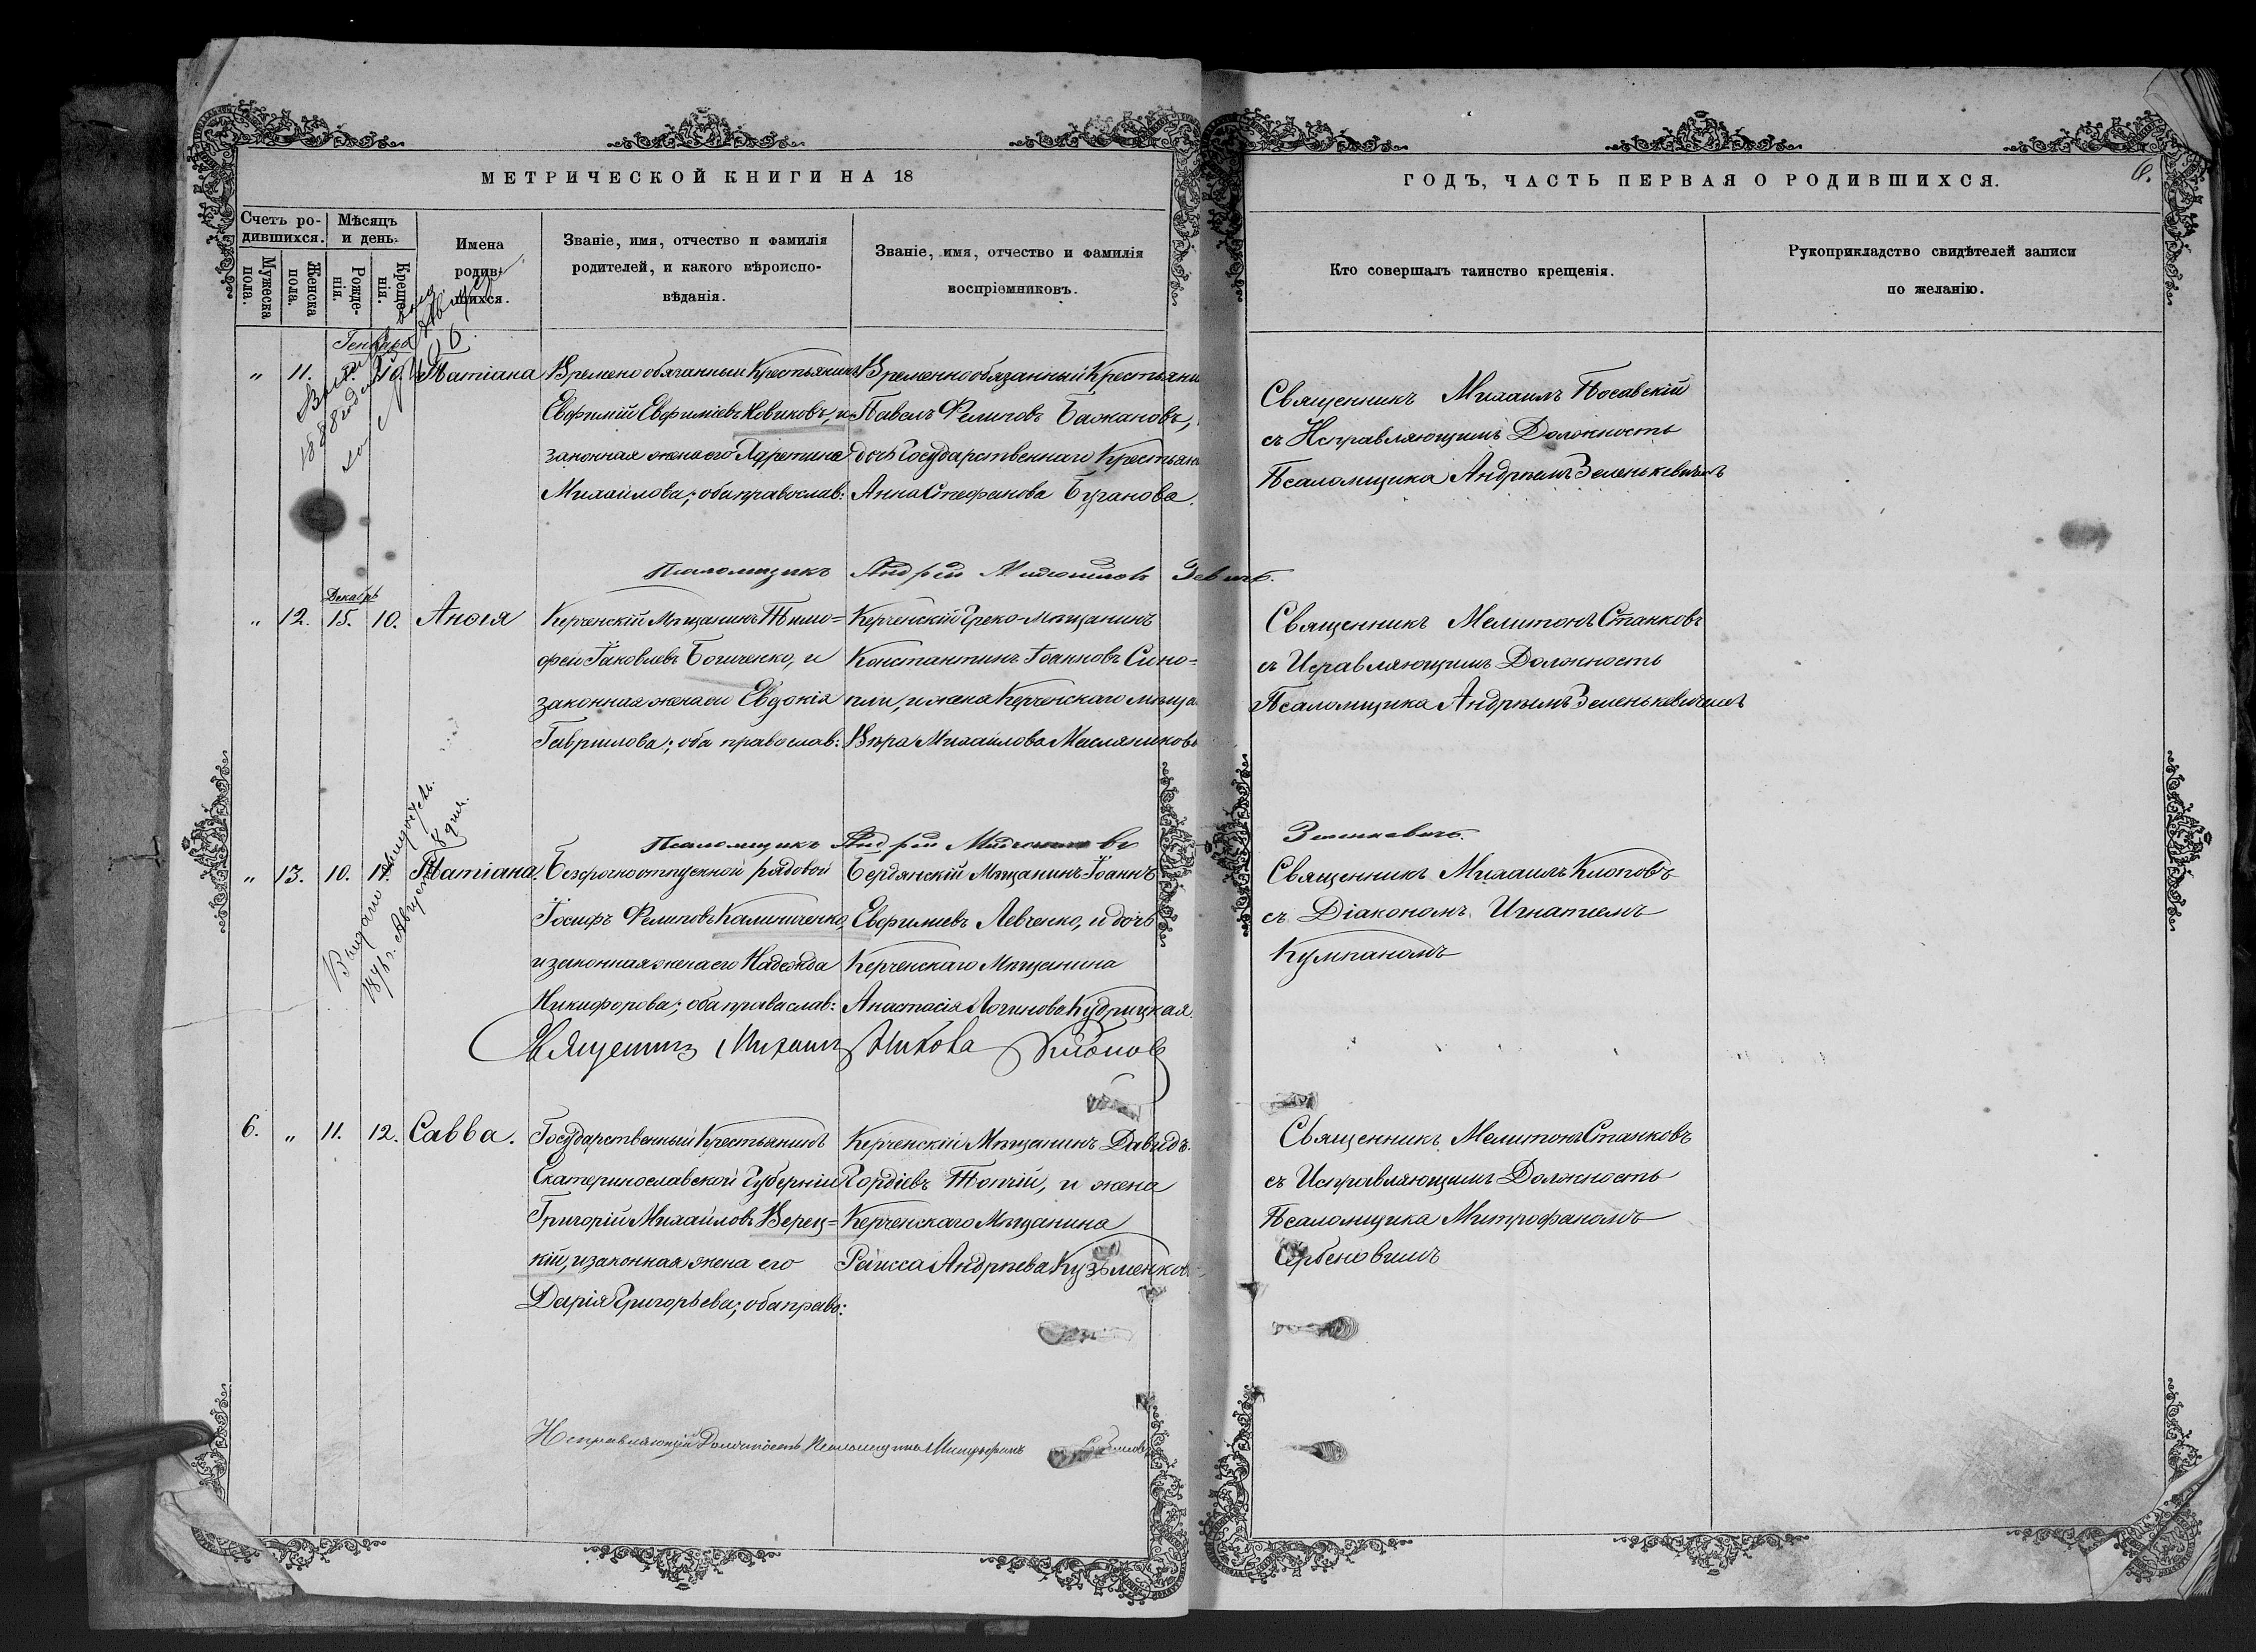 МЕТРИЧЕСКОЙ КНИГИ НА 18
Счетъ ро-
дившихся.
Мѣсяцъ
и день.
Мужеска
пола.
Женска
пола.
Рожде-
нія.
Креще-
нія.
Имена
родив-
шихся.
Званіе, имя, отчество и фамилія
родителей, и какого вѣроиспо-
вѣданія.
Званіе, имя, отчество и фамилія
воспріемниковъ.
ГОДЪ, ЧАСТЬ ПЕРВАЯ О РОДИВШИХСЯ.
6.
Кто совершалъ таинство крещенія.
Рукоприкладство свидѣтелей записи
по желанію.
Генваря
" 11. Татіана
Временообязанный Крестьянинъ
Евфимій Евфиміевъ Новиковъ, и
законная жена его
Михаилова; оба православ:
Временнообязанный Крестьяни
Павелъ Филиповъ Бажановъ,
дочь Государственнаго Крестьян
Анна Стефанова Буганова.
Священникъ Михаилъ
съ Исправляющимъ Должность
Псаломщика Андреемъ Зеленькевичемъ
Псаломщикъ Андрей
Декабрь
" 12. 15. 10. Анѳія
Керченскій Мѣщанинъ Тимо=
фей Іаковлевъ Богиченко, и
законная жена его Евдокія
Гавриилова; оба православ:
Керченскій Греко-мѣщанинъ
Константинъ Іоанновъ Сино=
пли, и жена Керченскаго мѣща
Вѣра Михаилова Масляникова
Священникъ Мелитонъ Станковъ
съ Исправляющимъ Должность
Псаломщика Андреемъ Зеленькевичемъ
Псаломщикъ Андрей
Выдано
187 г. Августа 8 дня.
" 13. 10. 11. Татіана.
Безсрочноотпускной рядовой
Іосифъ Филиповъ Калиниченко,
и законная жена его Надежда
Никифорова; оба православ:
Бердянскій Мѣщанинъ Іоаннъ
Евфиміевъ Левченко, и дочь
Керченскаго Мѣщанина
Анастасія Логинова Кудрицкая.
Священникъ Михаилъ Клоповъ
съ Діакономъ Игнатіемъ
Кумпаномъ
Священникъ Михаилъ
6. " 11. 12. Савва.
Государственный Крестьянинъ
Екатеринославской Губерніи
Григорій Михаиловъ Верец=
кій, и законная жена его
Дарія Григорьева; оба право:
Керченскій Мѣщанинъ Давидъ
Гордіевъ Топчій, и жена
Керченскаго Мѣщанина
Раисса Андреева Кузьменков
Священникъ Мелитонъ Станковъ
съ Исправляющимъ Должность
Псаломщика Митрофаномъ
Сербеновимъ
Исправляющій Должность Псаломщика Митрофанъ